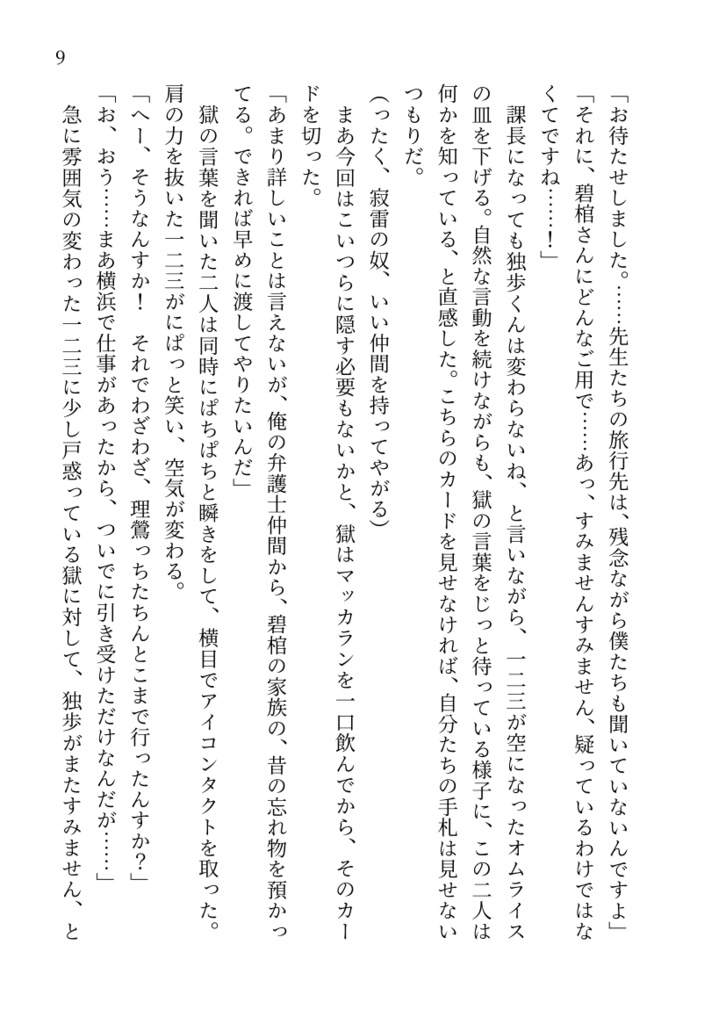 9
「お待たせしました。……先生たちの旅行先は、残念ながら僕たちも聞いていないんですよ」
「それに、碧棺さんにどんなご用で……あっ、すみませんすみません、疑っているわけではな
くてですね……！」
　課長になっても独歩くんは変わらないね、と言いながら、一二三が空になったオムライス
の皿を下げる。自然な言動を続けながらも、獄の言葉をじっと待っている様子に、この二人は
何かを知っている、と直感した。こちらのカードを見せなければ、自分たちの手札は見せない
つもりだ。
（ったく、寂雷の奴、いい仲間を持ってやがる）
　まあ今回はこいつらに隠す必要もないかと、獄はマッカランを一口飲んでから、そのカー
ドを切った。
「あまり詳しいことは言えないが、俺の弁護士仲間から、碧棺の家族の、昔の忘れ物を預かっ
てる。できれば早めに渡してやりたいんだ」
　獄の言葉を聞いた二人は同時にぱちぱちと瞬きをして、横目でアイコンタクトを取った。
肩の力を抜いた一二三がにぱっと笑い、空気が変わる。
「へー、そうなんすか！　それでわざわざ、理鶯っちたちんとこまで行ったんすか？」
「お、おう……まあ横浜で仕事があったから、ついでに引き受けただけなんだが……」
　急に雰囲気の変わった一二三に少し戸惑っている獄に対して、独歩がまたすみません、と